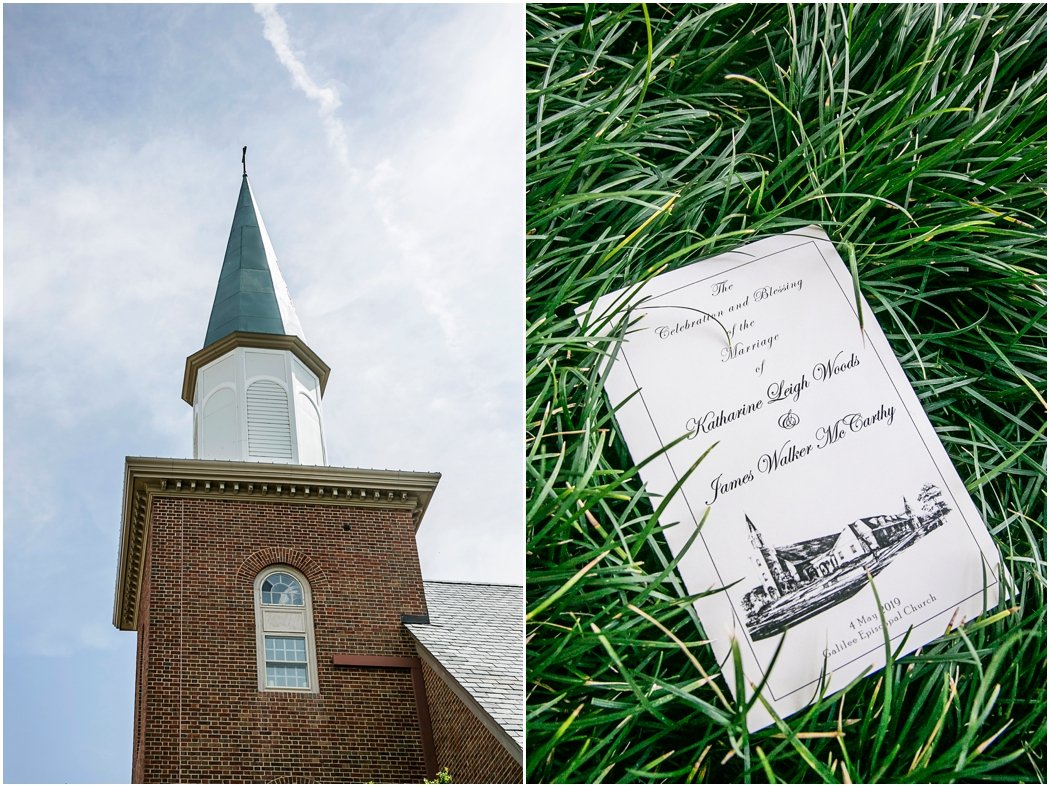 The
Celebration and Blessing
of the
Marriage
of
Katharine Leigh Woods
&
James Walker McCarthy
4 May 2019
Galilee Episcopal Church